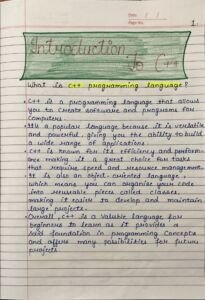 Date: / /
Page No.
1.
Introduction
to C++
What is C++ programming language?
• C++ is a programming language that allows
you to create software and programs for
Computers.
• It is a popular language because it is versatile
and powerful, giving you the ability to build
a wide range of applications.
• C++ is known for its efficiency and perform-
ance making it a great choice for tasks
that require speed and resource management.
• It is also an object-oriented language,
which means you can organise your code
into reusable pieces called classes,
making it easier to develop and maintain
large projects.
• Overall, C++ is a valuable language for
beginners to learn as it provides a
solid foundation in programming Concepts
and offers many possibilities for future
projects.